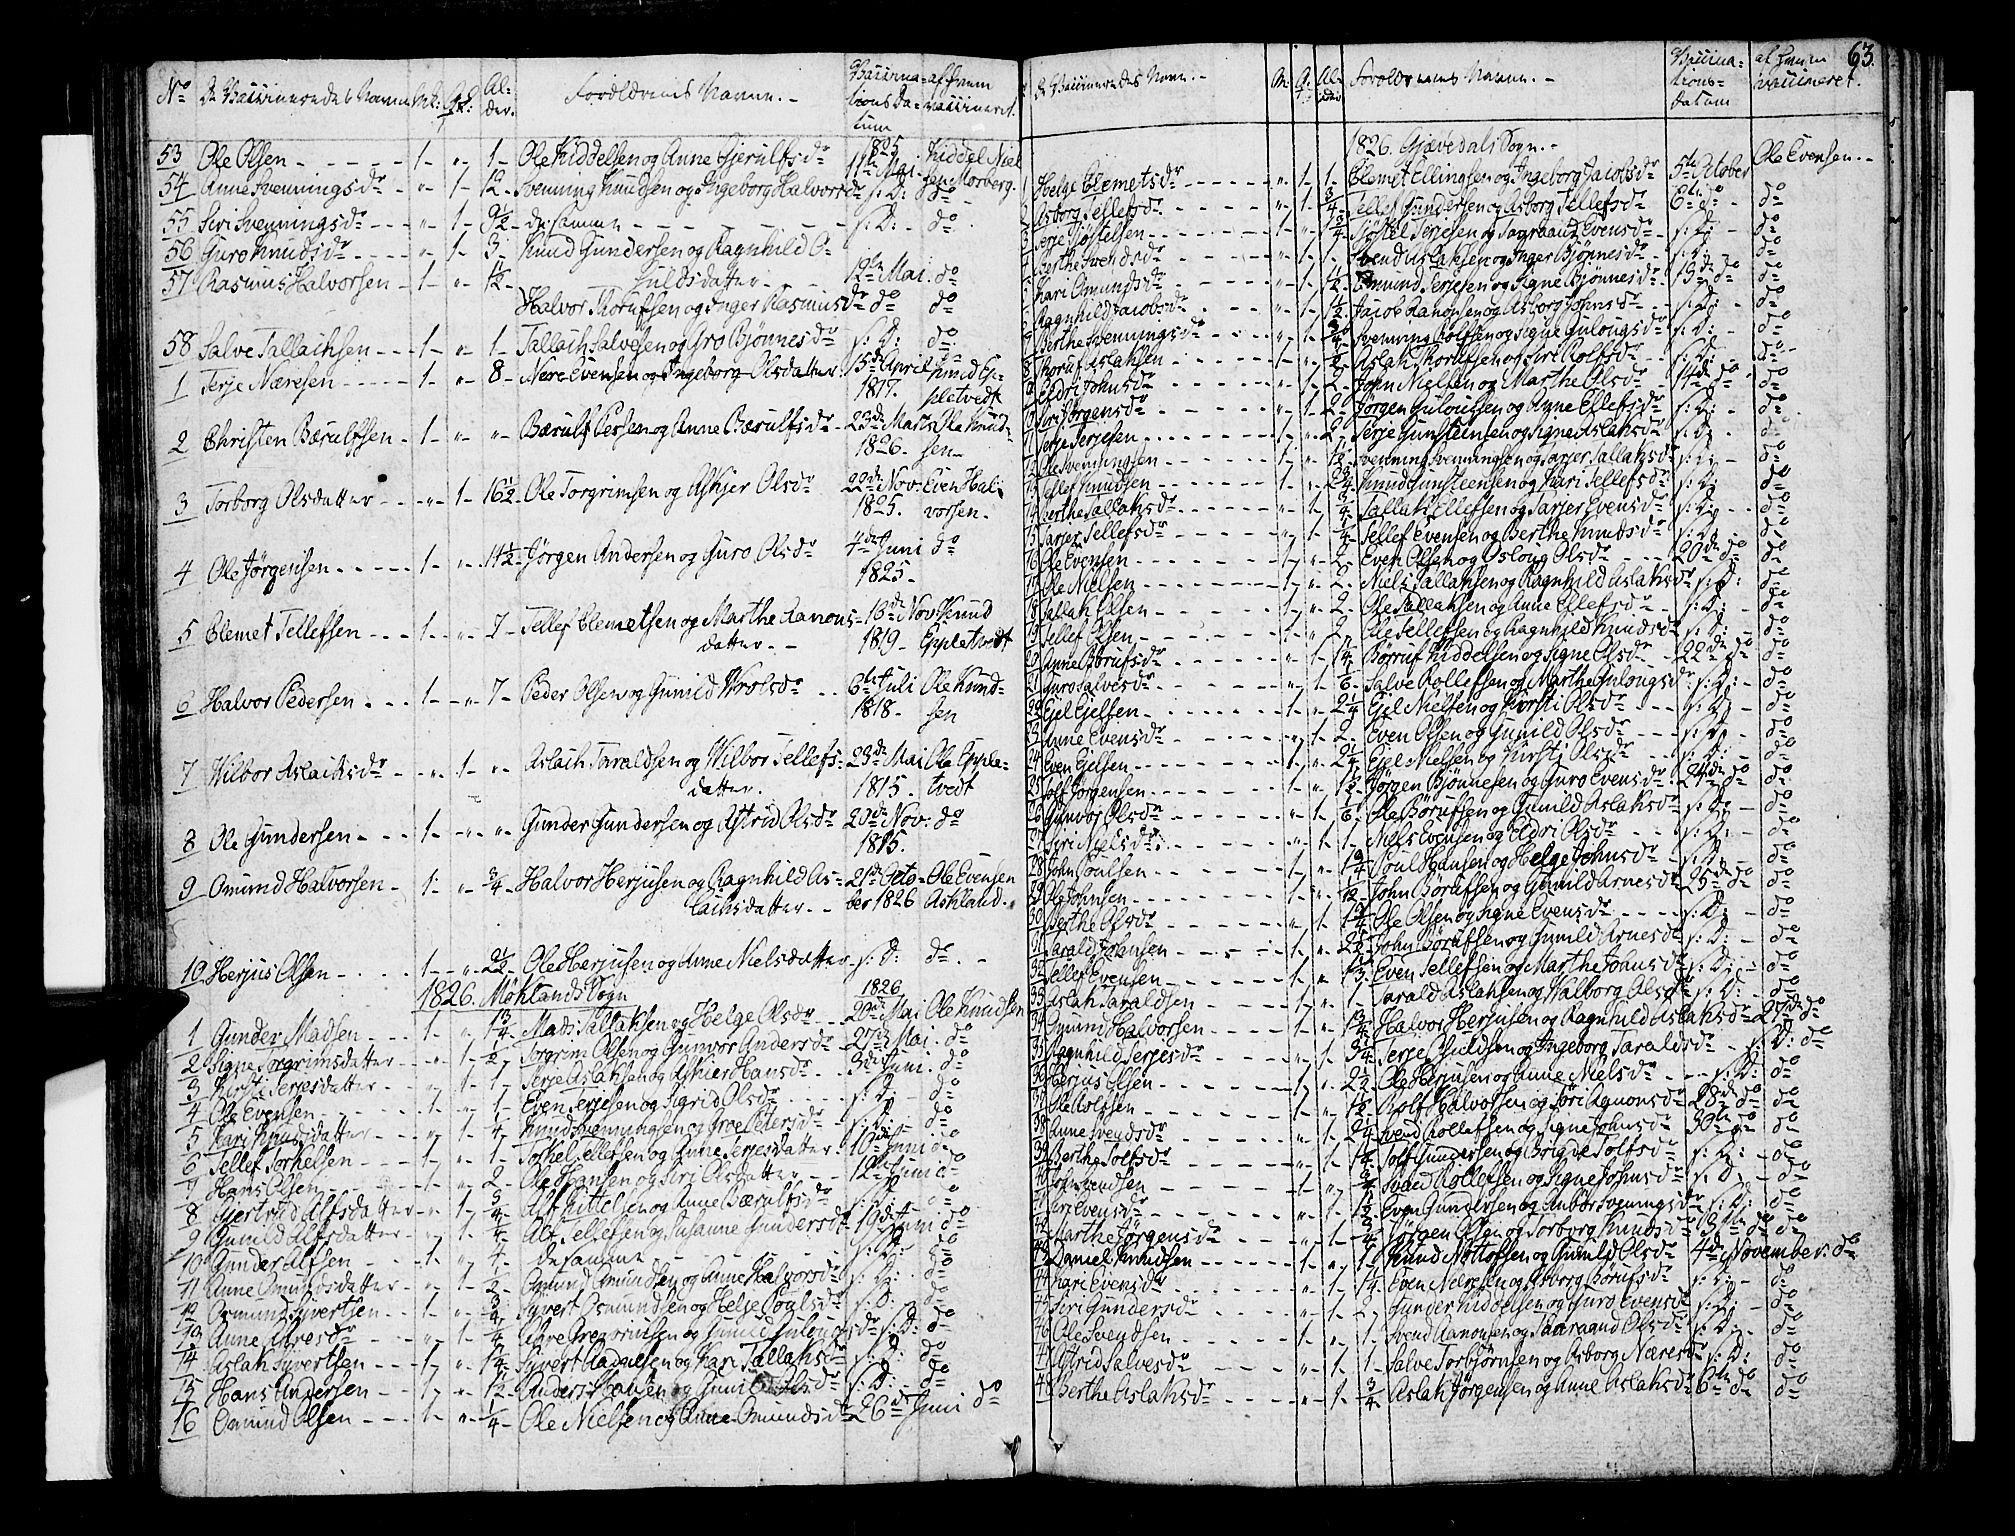 No De Vaccineredes Navne Mk: Qk: Al:der. Forældrenes Navne.- Vaccinationsdatum af hvem vaccineret.
53 Ole Olsen - 1- " 1- Ole Kiddelsen og Anne Gjerulfsdr 1825 11te Mai Kiddel Niel
54 Anne Svenningsdr - " 1- 12- Svenning Knudsen og Ingeborg Halvorsdr s: D: sen Morberg.
55 Siri Svenningsdr - " 1- 9½ de samme - s: D: do
56 Guro Knudsdr - " 1- 3- Knud Gundersen og Ragnhild O-
suldsdatter - 12te Mai. do
57 Rasmus Halvorsen - 1- " 1½- Halvor Thorufsen og Inger Rasmusdr do do
58 Salve Tallachsen - 1- " 1- Tallach Salvesen og Gro Bjønnesdr s: D: do
1 Terje Næresen - 1- " 8- Nere Evensen og Ingeborg Olsdatter. 15de April Knud Ep-
1817. pletvedt
2 Christen Bærulfsen - 1- " " Bærulf Persen og Anne Bærulfsdr - 23de Marts Ole Knud-
1826. sen-
3 Torborg Olsdatter - " 1- 16½ Ole Torgrimsen og Askjer Olsdr 22de Nov: Even Hal-
1825. vorsen.
4 Ole Jørgensen - 1- " 14½ Jørgen Andersen og Guro Olsdr 4de Juni do
1825-
5 Clemet Tellefsen - 1- " 7- Tellef Clemetsen og Marthe Aanons- 16de Nov: Knud
datter. - 1819- Eppletvedt
6 Halvor Pedersen - 1- " 7- Peder Olsen og Gunild Wrolsdr 6te Juli Ole Knud-
1818- sen
7 Wilbor Aslachsdr - " 1- " Aslach Taraldsen og Wilbor Tellefs- 23de Mai Ole Epple-
datter. 1815. tvedt
8 Ole Gundersen - 1- " " Gunder Gundersen og Astrid Olsdr 20de Nov. do
1815.
9 Omund Halvorsen - 1- " ¾- Halvor Herjusen og Ragnhild As- 21de Octo- Ole Evensen
lachsdatter - ber 1826 Ashland.
10 Herjus Olsen - 1- " 2½ Ole Herjusen og Anne Nielsdatter - s: D: do -
1826. Møklands Sogn 1826
1 Gunder Madsen - 1- " 1¾- Mads Tallaksen og Helge Olsdr 20de Mai Ole Knudsen
2 Signe Torgrimsdatter - " 1- ½- Torgrim Olsen og Gunvor Andersdr 27de Mai. do
3 Kirsti Terjesdatter - " 1- 7- Terje Aslaksen og Askier Hansdr 3de Juni. do
4 Ole Evensen - 1- " 1- Even Terjesen og Sigrid Olsdr s: D: do
5 Kari Knudsdatter - " 1- Knud Svenningsen og Groe Pedersdr - s: D: do
6 Tellef Torkelsen - 1- " 1- Torkel Tellefsen og Anne Terjesdatter: 10de Juni do
7 Hans Olsen - 1- " 2- Ole Hansen og Siri Olsdatter - 12te Juni do
8 Gjertrud Alfsdatter - " 1- ¾- Alf Kittelsen og Anne Bærulfsdr s: D: do
9 Gunild Alfsdatter - " 1- Alf Tellefsen og Susanne Gundersdr 19de Juni do
10 Gunder Alfsen - 1- " 4- de samme s: D: do
11 Anne Omundsdatter - " 1- ½- Omund Omundsen og Anne Halvorsdr s: D: do
12 Osmund Syvertsen - 1- " ¾- Syvert Osmundsen og Helje Poulsdr s: D: do
13 Anne Aavesdr " 1- Aave Gregoriusen og Gunild Gulougsdr s: D: do
14 Aslak Syvertsen - 1- " 1¼- Syvert Aadnesen og Kari Tallaksdr s: D: do
15 Hans Andersen - 1- " 1½ Anders Hansen og Gunild Olsdr s: D: do
16 Omund Olsen - 1- " ¼- Ole Nielsen og Anne Omundsdr 26de Juni do
63.
De Vaccineredes Navn. - M: Q: Al:der Forældrenes Navne. - Vaccinationsdatum af hvem vaccineret.
1826. Gjøvedals Sogn. -
1 Helge Clemetsdr - " 1- 1. Clemet Ellingsen og Ingeborg Jacobsdr 5te October Ole Evensen. -
2 Asborg Tellefsdr - " 1- ¾ Tellef Gundersen og Asborg Tellefsdr 6te do - do
3 Terje Sjøstelsen - 1- " Sjøstel Terjesen og Taaraand Evensdr - s: D: - do
4 Berthe Svendsdr - " 1- 1- Svend Aslaksen og Inger Bjønnesdr - s: D: do
5 Kari Omundsdr - " 1- 1½ Omund Terjesen og Signe Bjønnesdr - 13de do do
6 Ragnhild Jacobsdr - " 1- 1½ Jacob Aanonsen og Asborg Johnsdr - s: D: do
7 Berthe Svenningsdr - " 1- Svenning Rolfsen og Signe Gulougsdr s: D: - do
8 Thoruf Aslaksen - 1- " 2- Aslak Thorufsen og Siri Rolfsdr - s: D: do
9 Eldri Johnsdr - " 1- 2- John Nielsen og Marthe Olsdr - 14de do do
10 Siri Jørgensdr - " 1- 2- Jørgen Gulougsen og Anne Ellefsdr - s: D: do
11 Terje Terjesen - 1- " 2- Terje Gunsteinsen og Signe Aslaksdr - s: D: do
12 Ole Svenningsen - 1- " 1½ Svenning Svenningsen og Tarjer Tallaksdr s: D: do
13 Tellef Knudsen - 1- " 2¾ Knud Gunsteensen og Kari Tellefsdr s: D: do
14 Berthe Tallaksdr - " 1- ¾- Tallak Ellefsen og Tarjer Evensdr s: D: - do
15 Tarjer Tellefsdr - " 1- Tellef Evensen og Berthe Knudsdr - s: D: do
16 Ole Evensen - 1- " Even Olsen og Osloug Olsdr - 20de do do
17 Ole Nielsen - 1- " 2- Niels Tallaksen og Ragnhild Aslaksdr s: D: do
18 Tallak Olsen - 1- " 2- Ole Tallaksen og Anne Ellefsdr - s: D: do
19 Tellef Olsen - 1- " 2- Ole Tellefsen og Ragnhild Knudsdr s: D: do
20 Anne Børufsdr - " 1- 1¼- Børruf Kiddelsen og Signe Olsdr 22de do do
21 Guro Salvesdr - " 1- 6- Salve Rollefsen og Marthe Gulougsdr s: D: do
22 Ejel Ejelsen - 1- " 2¼ Ejel Nielsen og Kirsti Olsdr - s: D: do
23 Anne Evensdr - " 1- 2- Even Olsen og Gunild Olsdr - s: D: do
24 Even Ejelsen - 1- " 2¼ Ejel Nielsen og Kirsti Olsdr - s: D: do
25 Tolf Jørgensen - 1- " 1½- Jørgen Bjønnesen og Guro Evensdr 24de do do
26 Gunvor Olsdr - " 1- Ole Børufsen og Gunild Aslaksdr - s: D: - do
27 Siri Nielsdr - " 1- 1- Niels Evensen og Eldri Olsdr - s: D: - do
28 John Poulsen - 1- " 1¾ Poul Hansen og Helge Johnsdr - s: D: - do
29 Ole Johnsen - 1- " John Børufsen og Gunild Arnesdr 25de do do
30 Berthe Olsdr - " 1- Ole Olsen og Signe Evensdr - s: D: do
31 Tarald Johnsen - 1- " 2½ John Børufsen og Gunild Arnesdr s: D: - do
32 Tellef Evensen - 1- " Even Tellefsen og Marthe Johnsdr s: D: - do
33 Aslak Taraldsen - 1- " 1- Tarald Aslaksen og Walborg Olsdr s: D: - do
34 Omund Halvorsen - 1- " ¾ Halvor Herjusen og Ragnhild Aslaksdr 27de do
35 Ragnhild Terjesdr - " 1- 3¼ Terje Osuldsen og Ingeborg Taraldsdr - s: D: do
36 Herjus Olsen - 1- " 2½ Ole Herjusen og Anne Nielsdr - s: D: do
37 Ole Rolfsen - 1- " 1½ Rolf Halvorsen og Siri Aanonsdr 28de do do
38 Anne Svendsdr - " 1- 2¼ Svend Rollefsen og Signe Johnsdr 30te do do
39 Berthe Tolfsdr - " 1- 1¼ Tolf Gundersen og Børgde Tolfsdr - s: D: - do
40 John Svendsen - 1- " ¾ Svend Rollefsen og Signe Johnsdr - s: D - do
41 Siri Evensdr - " 1- 1½ Even Gundersen og Anbor Svenningsdr - s: D: do
42 Marthe Jørgensdr - " 1- ¾ Jørgen Olsen og Torborg Knudsdr 31te do do
43 Daniel Knudsen - 1- " 1- Knud Nottolfsen og Gunild Olsdr 4de November: do
44 Kari Evensdr - " 1- ¼- Even Næresen og Asborg Børufsdr s: D: - do
45 Siri Gundersdr - " 1- 2- Gunder Kiddelsen og Guro Evensdr s: D: - do
46 Ole Svendsen - 1- " 1- Svend Aanonsen og Taaraand Olsdr s: D: - do
47 Astrid Salvesdr - " 1- 1- Salve Torbjørnsen og Asborg Næresdr s: D: do
48 Berthe Aslaksdr - " 1- ¾ Aslak Jørgensen og Anne Aslaksdr 6te do do